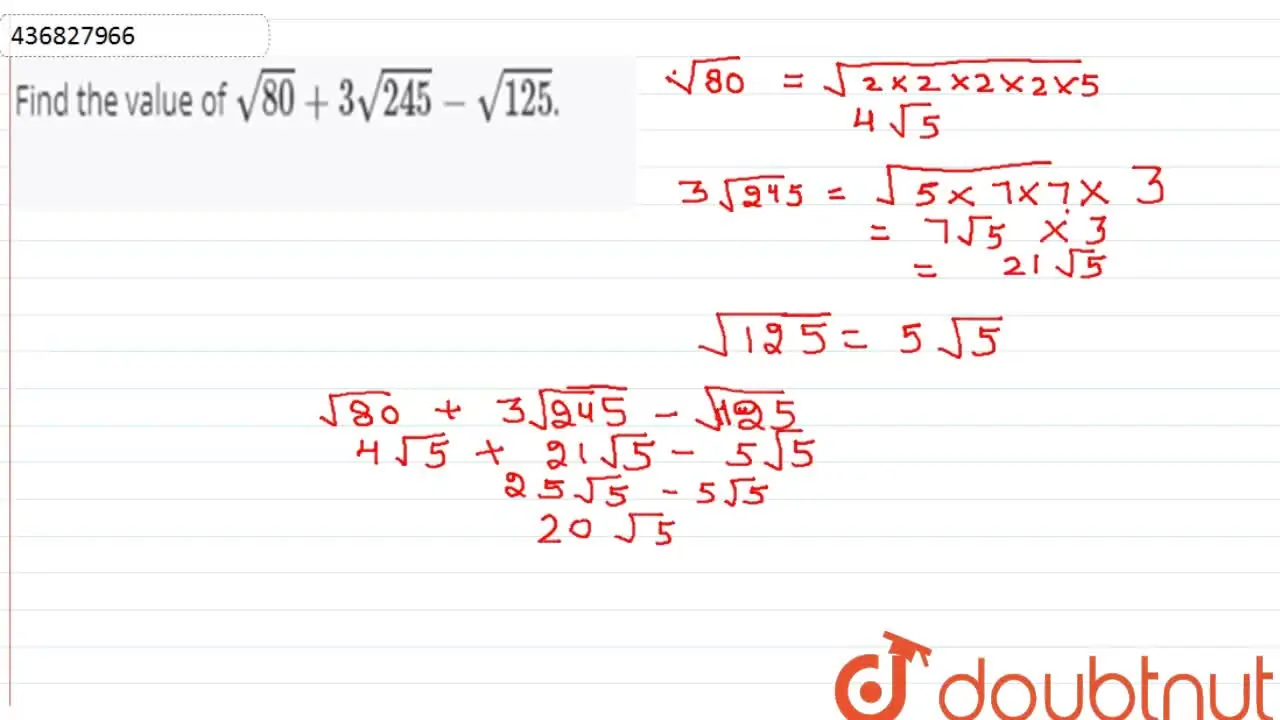 436827966
Find the value of √80 + 3√245 − √125.
√80 = √2×2×2×2×5
4√5
3√245 = √5×7×7× 3
= 7√5 × 3
= 21√5
√125 = 5√5
√80 + 3√245 − √125
4√5 + 21√5 − 5√5
25√5 − 5√5
20√5
doubtnut